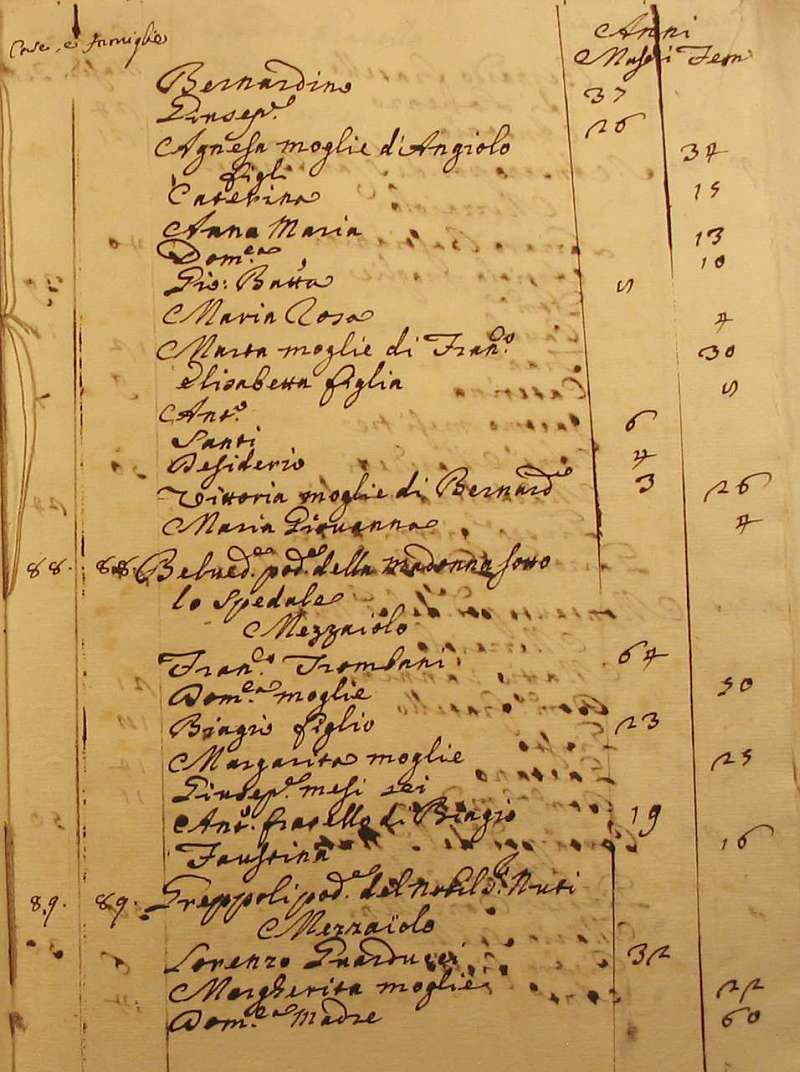 Case, e famiglie
Anni
Maschi Fem
Bernardino 37
Giusep.e 26
Agnesa moglie d'Angiolo 34
figli
Caterina 15
Anna Maria 13
Dom.ca 10
Gio: Batta 5
Maria Rosa 4
Marta moglie di Fran.co 30
Elisabetta figlia 5
Ant.o 6
Santi 4
Desiderio 3
Vittoria moglie di Bernard.o 26
Maria Giovanna 4
88. 88. Belued.e pod.e della Madonna sotto
lo spedale
Mezzaiolo
Fran.co Trombani 64
Dom.ca moglie 50
Biagio figlio 23
Margarita moglie 25
Giusep.e mesi sei
Ant.o fratello di Biagio 19
Faustina 16
89. 89. Greppoli pod.e del Nobil S.r Nuti
Mezzaiolo
Lorenzo Guarducci 32
Margherita moglie 22
Dom.ca Madre 60